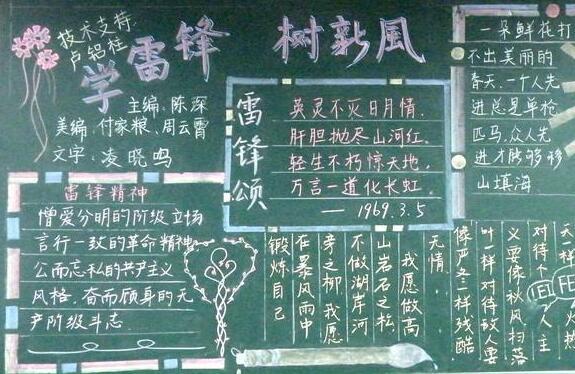 学雷锋 树新風
技术支持:
卢铝桂
主编:陈深
美编:付家粮、周云霄
文字:凌晓鸣
雷锋精神
憎爱分明的阶级立场
言行一致的革命精神
公而忘私的共产主义
风格,奋而顾身的无
产阶级斗志.
雷锋颂
英灵不灭日月情,
肝胆抛尽山河红.
轻生不朽惊天地,
万言一道化长虹.
——1969.3.5
一朵鲜花打
不出美丽的
春天,一个人先
进总是单枪
匹马,众人先
进才能够移
山填海
对待个人主
义要像秋风扫落
叶一样,对待敌人要
像严冬一样残酷
无情.
我愿做高
山岩石之松
不做湖岸河
旁之柳,我愿
在暴风雨中
锻炼自己